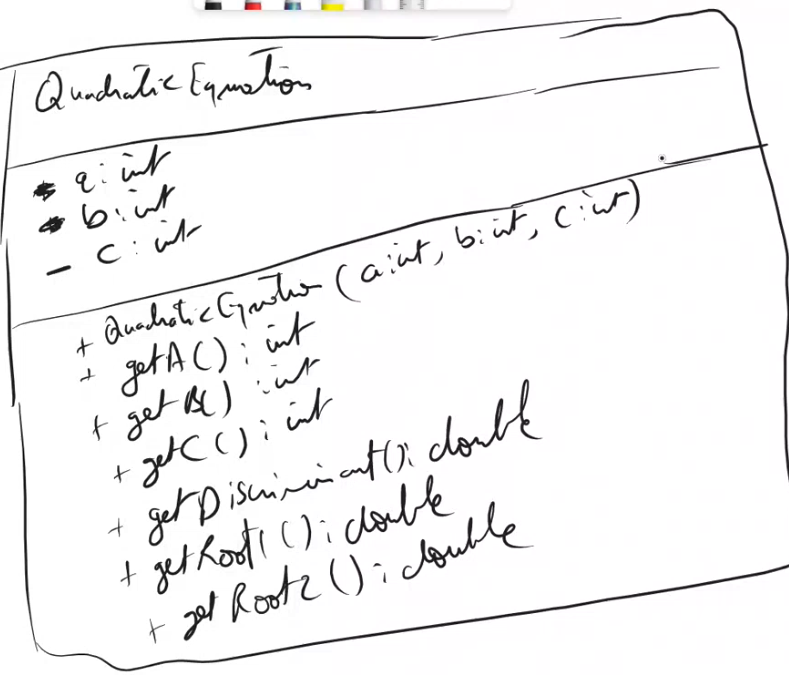 Quadratic Equation
- a: int
- b: int
- c: int
+ Quadratic Equation (a: int, b: int, c: int)
+ getA(): int
+ getB() : int
+ getC(): int
+ getDiscriminant(): double
+ getRoot1(): double
+ getRoot2(): double